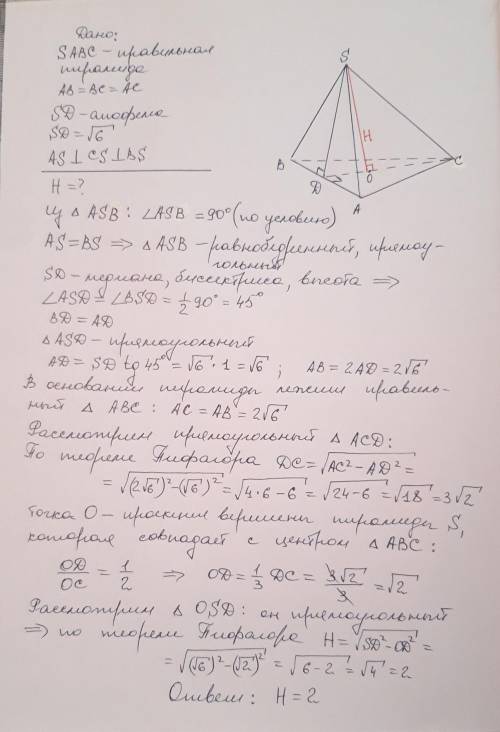 Дано:
SABC – правильная
пирамида
AB = BC = AC
SD – апофема
SD = √6
AS ⊥ CS ⊥ BS
H = ?
S
H
B
C
D
O
A
Из △ ASB : ∠ASB = 90° (по условию)
AS = BS ⟹ △ ASB – равнобедренный, прямоу-
гольный
SD – медиана, биссектриса, высота ⟹
∠ASD = ∠BSD = 1/2 90° = 45°
BD = AD
△ ASD – прямоугольный
AD = SD tg 45° = √6 · 1 = √6 ; AB = 2AD = 2√6
В основании пирамиды лежит правиль-
ный △ ABC : AC = AB = 2√6
Рассмотрим прямоугольный △ ACD :
По теореме Пифагора DC = √(AC² – AD²) =
= √((2√6)² – (√6)²) = √(4·6 – 6) = √(24 – 6) = √18 = 3√2
точка O – проекция вершины пирамиды S,
которая совпадает с центром △ ABC :
OD/OC = 1/2 ⟹ OD = 1/3 DC = 3√2/3 = √2
Рассмотрим △ OSD : он прямоугольный
⟹ по теореме Пифагора H = √(SD² – OD²) =
= √((√6)² – (√2)²) = √(6 – 2) = √4 = 2
Ответ : H = 2